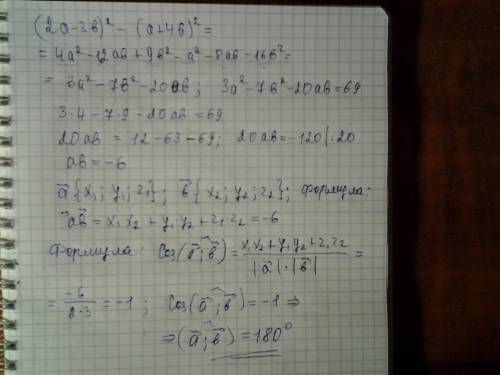 (2a-3b)² - (a+4b)² =
= 4a²-12ab+9b²-a²-8ab-16b²=
= 3a²-7b²-20ab; 3a²-7b²-20ab=69
3·4-7·9-20ab=69
20ab = 12-63-69; 20ab=-120|:20
ab=-6
a⃗{x₁; y₁; z₁}; b⃗{x₂; y₂; z₂}; формула:
a⃗b⃗ = x₁x₂+y₁y₂+z₁·z₂=-6
Формула: Cos(a⃗;b⃗)= x₁x₂+y₁y₂+z₁z₂ / |a⃗|·|b⃗| =
= -6 / 2·3 = -1; Cos(a⃗;b⃗)=-1 ⇒
⇒(a⃗;b⃗)=180°